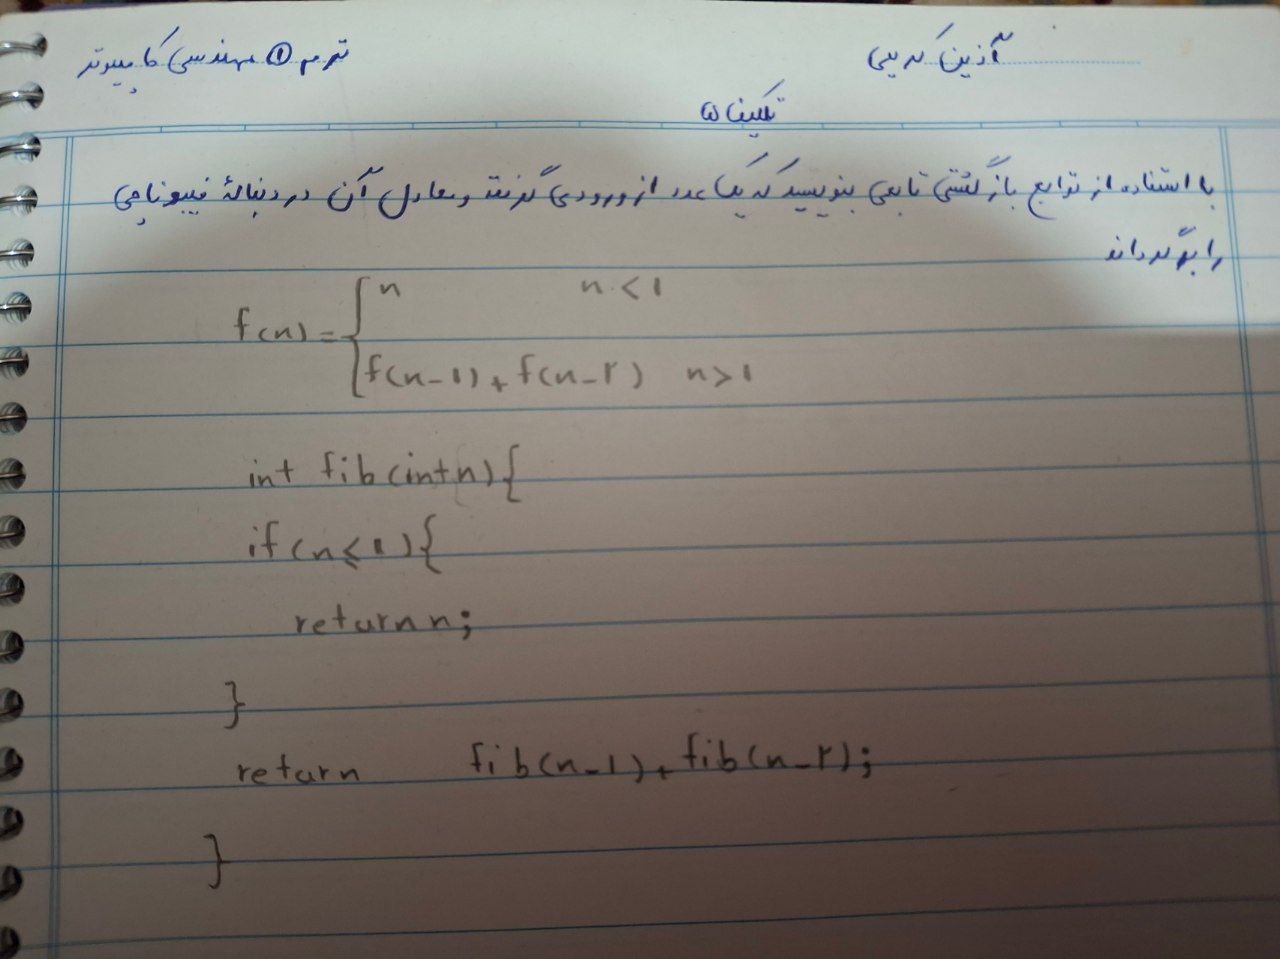 آذین کریمی
ترم ① مهندسی کامپیوتر
تکلیف ۵
با استفاده از توابع بازگشتی تابعی بنویسید که یک عدد از ورودی گرفته و معادل آن در دنبالهٔ فیبوناچی
را برگرداند
f(n) = { n n < 1
f(n-1) + f(n-۲) n > 1
int fib(int n){
if(n ≤ 1){
return n;
}
return fib(n-1) + fib(n-۲);
}